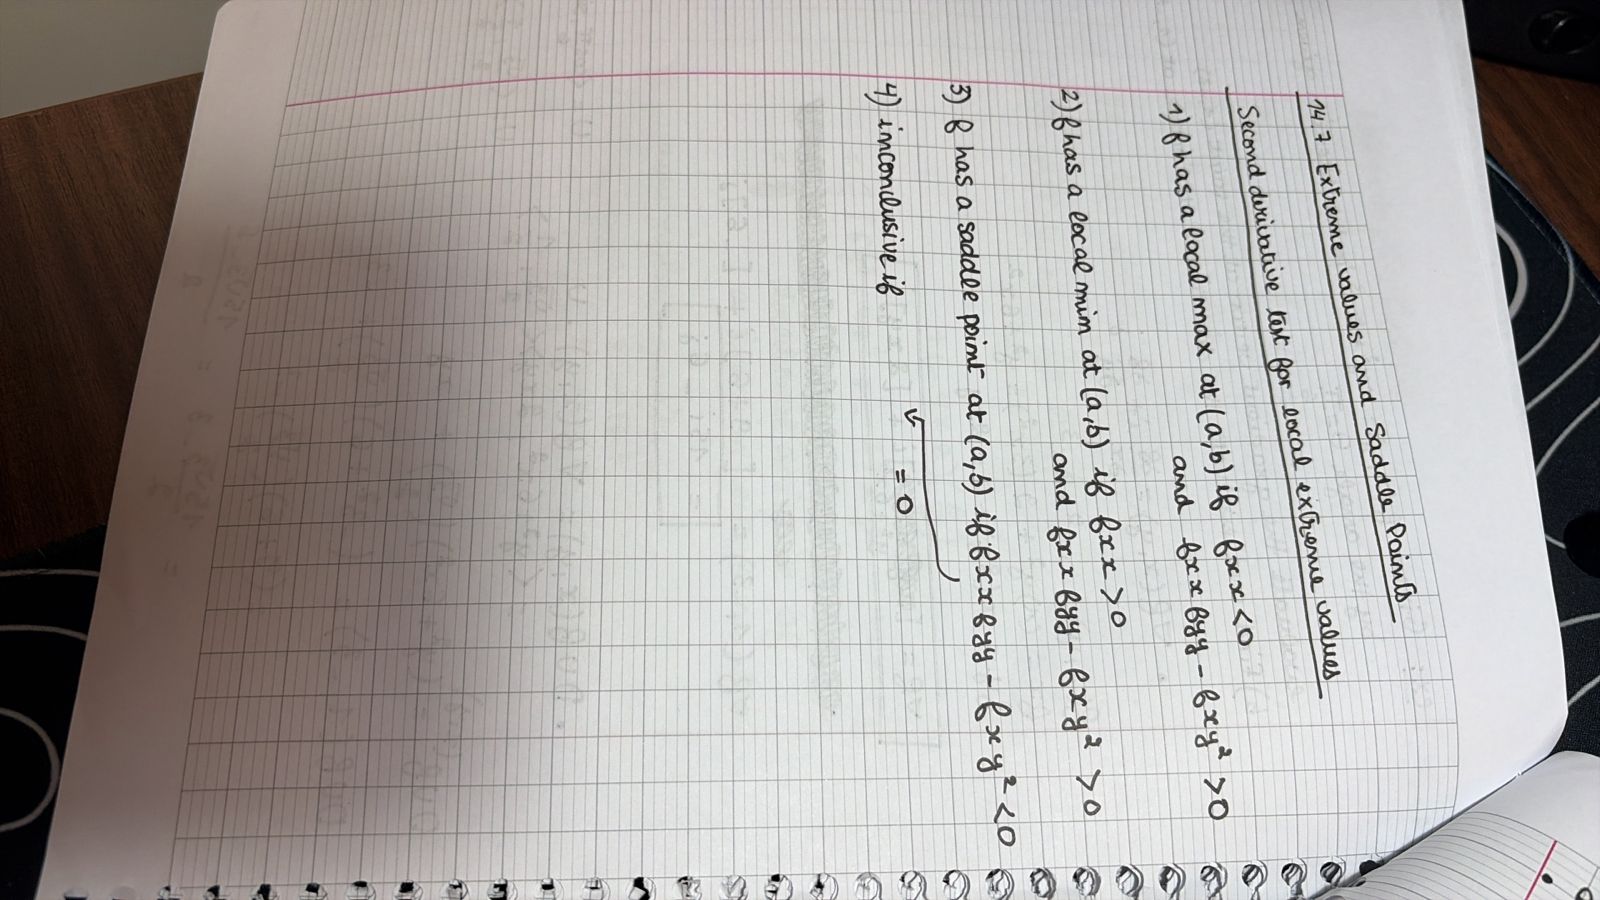 14.7 Extreme values and Saddle Points
Second derivative test for local extreme values
1) f has a local max at (a,b) if fxx < 0
and fxx fyy - fxy² > 0
2) f has a local min at (a,b) if fxx > 0
and fxx fyy - fxy² > 0
3) f has a saddle point at (a,b) if fxx fyy - fxy² < 0
4) inconclusive if = 0